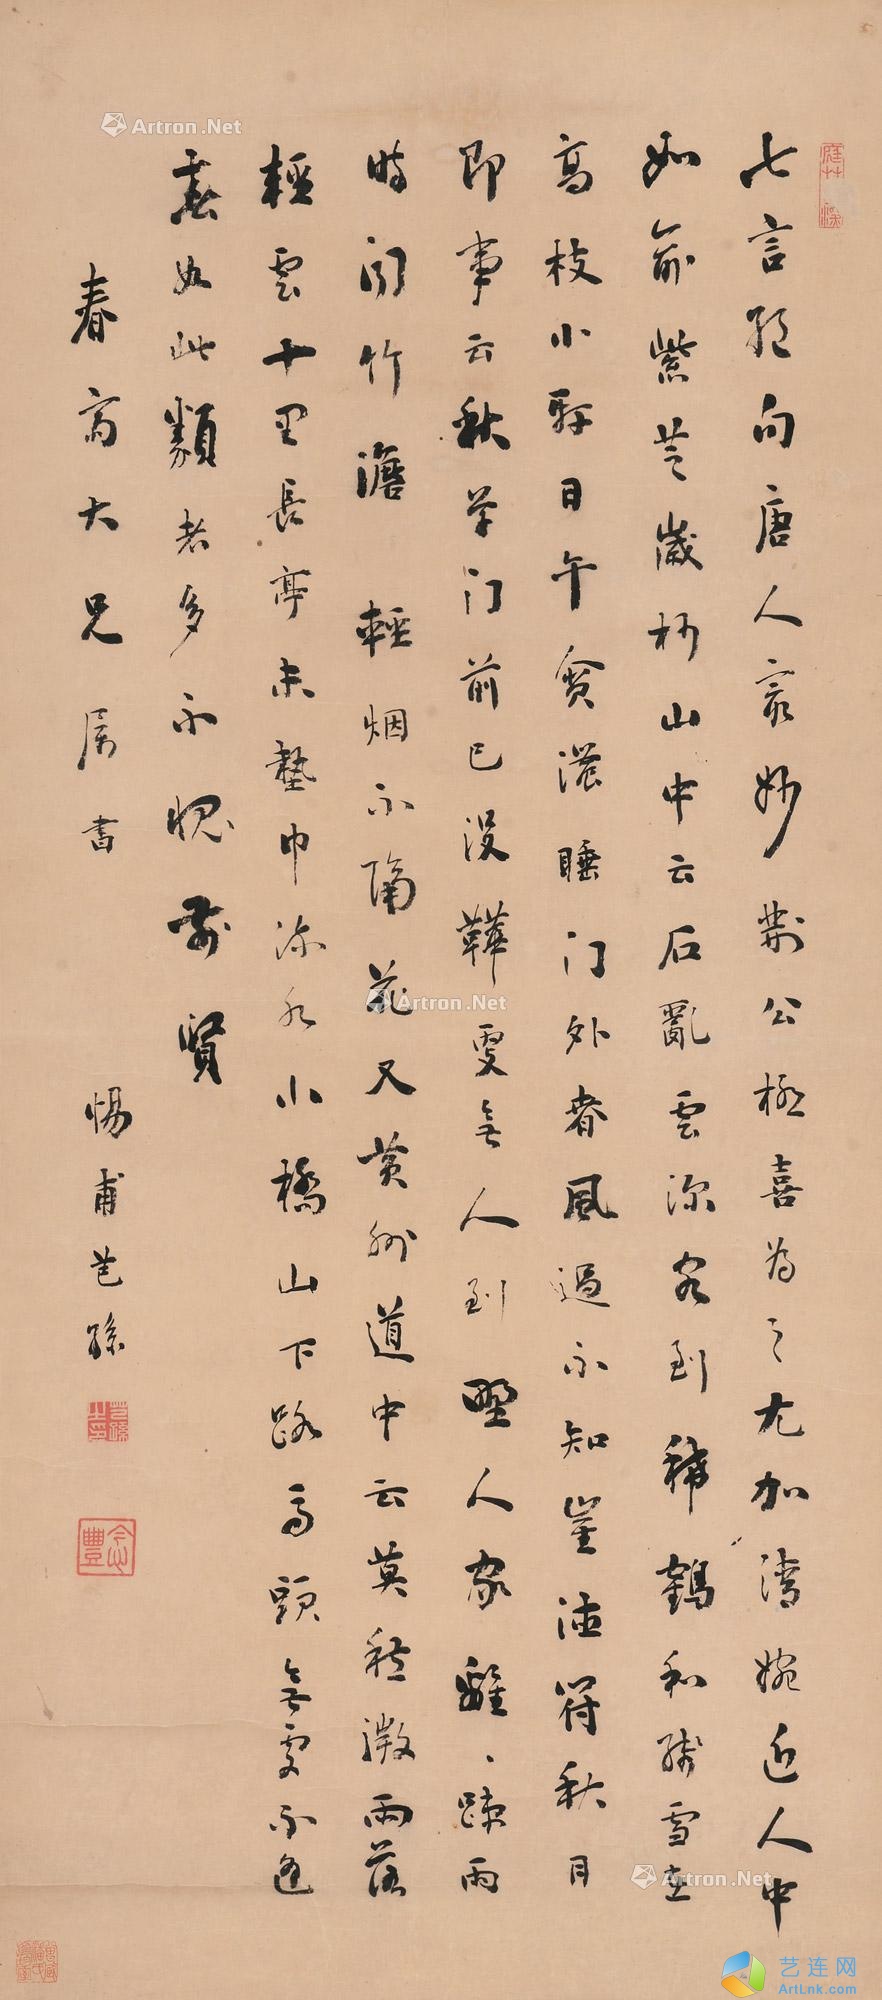 七言絕句唐人最妙荊公極喜為之尤加清婉近人中
如俞紫芝歲杪山中云石亂雲深客到稀鶴和殘雪在
高枝小軒日午貪濃睡門外春風過不知崔德符秋日
即事云秋草門前已沒鞾更無人到野人家離、疎雨
時聞竹澹 輕烟不隔花又黃州道中云莫愁微雨落
輕雲十里長亭未墊巾流水小橋山下路馬頭無處不逢
春如此類者多不愧前賢
春大兄屬書
惕甫芑孫
念豐
Artron.Net
Artron.Net
Artron.Net
艺连网
ArtLink.com